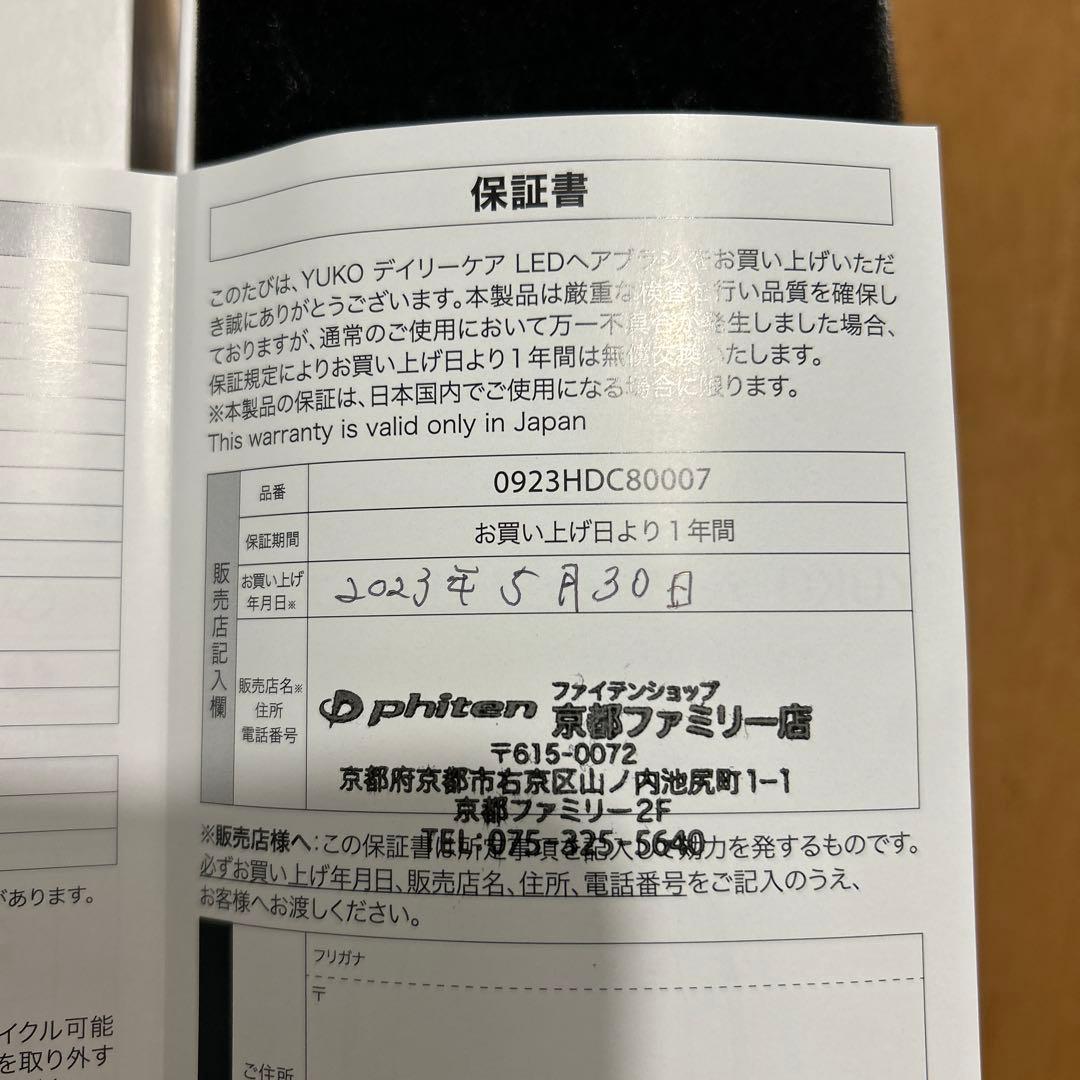 保証書
このたびは、YUKO デイリーケア LEDヘアブラシをお買い上げいただ
き誠にありがとうございます。本製品は厳重な検査を行い品質を確保し
ておりますが、通常のご使用において万一不具合が発生しました場合、
保証規定によりお買い上げ日より1年間は無償交換いたします。
※本製品の保証は、日本国内でご使用になる場合に限ります。
This warranty is valid only in Japan
販売店記入欄
品番 0923HDC80007
保証期間 お買い上げ日より1年間
お買い上げ
年月日※ 2023年5月30日
販売店名※
住所
電話番号
phiten ファイテンショップ
京都ファミリー店
〒615-0072
京都府京都市右京区山ノ内池尻町1-1
京都ファミリー2F
TEL:075-325-5640
※販売店様へ:この保証書は所定事項を記入して効力を発するものです。
必ずお買い上げ年月日、販売店名、住所、電話番号をご記入のうえ、
お客様へお渡しください。
フリガナ
〒
ご住所
があります。
イクル可能
を取り外す